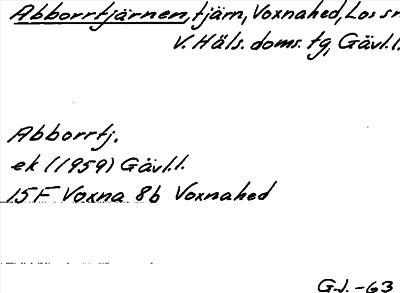 Abborrtjärnen, tjärn, Voxnahed, Los sn
V. Häls. doms. tg, Gävl.l.
Abborrtj.
ek (1959) Gävl.l.
15F Voxna 8b Voxnahed
G.J. -63